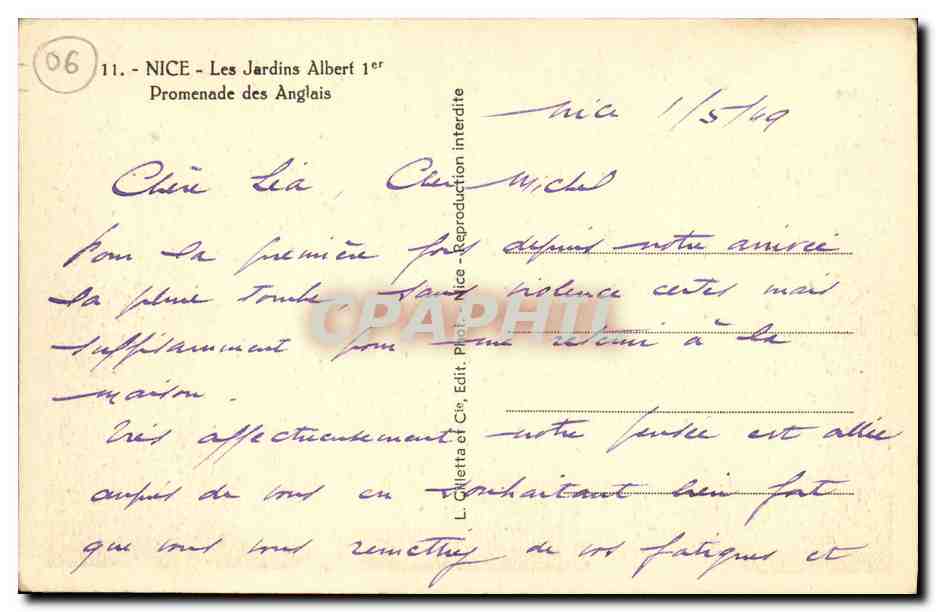 06
11. - NICE - Les Jardins Albert 1er
Promenade des Anglais
L. Gilletta et Cie, Edit. Phot. Nice - Reproduction interdite
Nice 1/5/49
Chère Léa, Cher Michel
Pour la première fois depuis notre arrivée
la pluie tombe, sans violence certes mais
suffisamment pour me retenir à la
maison.
Très affectueusement notre pensée est allée
auprès de vous en souhaitant bien fort
que vous vous remettiez de vos fatigues et
CPAPHIL